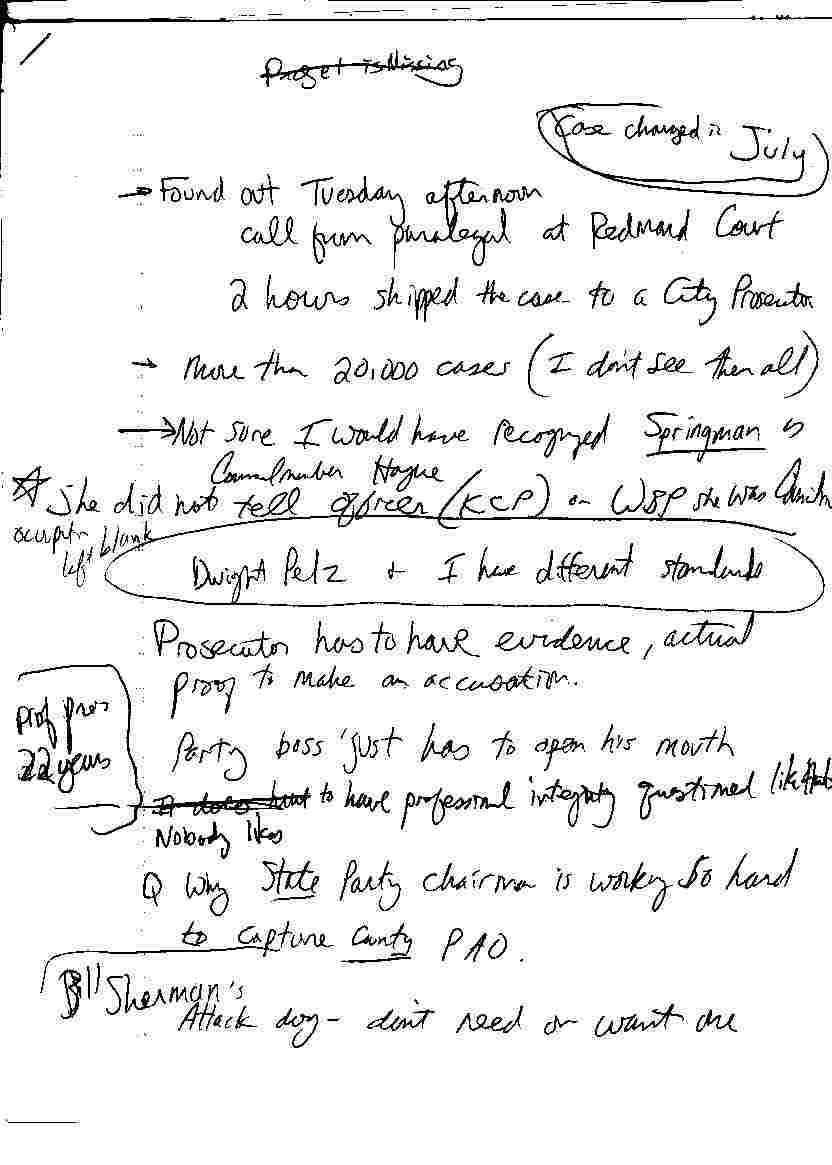 Case changed in
July
→ Found out Tuesday afternoon
call from paralegal at Redmond Court
2 hours shipped the case to a City Prosecutor
→ More than 20,000 cases (I don't see them all)
→ Not sure I would have recognized Springman is
Councilmember Hague
☆ She did not tell officer (KCP) or WSP she was
left blank
Dwight Pelz + I have different standards
Prosecutor has to have evidence, actual
proof to make an accusation.
22 years
Party boss just has to open his mouth
to have professional integrity questioned like that
Nobody likes
Q Why State Party chairman is working so hard
to capture County PAO.
Bill Sherman's
Attack dog - don't need or want one